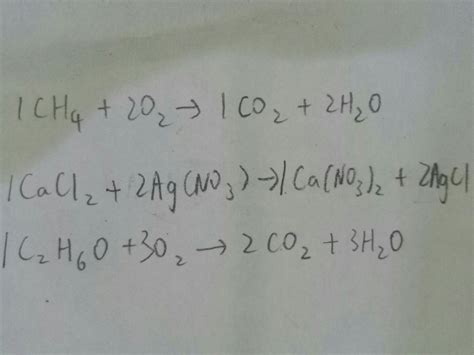 1CH₄ + 2O₂ → 1CO₂ + 2H₂O
1CaCl₂ + 2Ag(NO₃) → 1Ca(NO₃)₂ + 2AgCl
1C₂H₆O + 3O₂ → 2CO₂ + 3H₂O